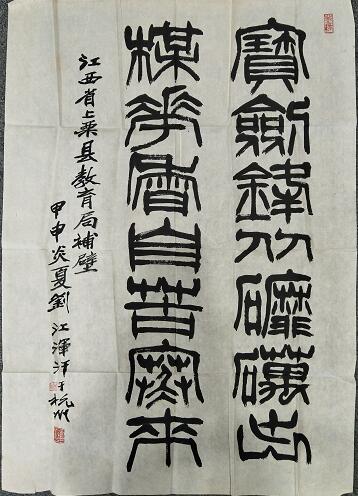 寶劍鋒从䃺礪出
楳華香自苦寒來
江西省上栗县教育局補壁
甲申炎夏劉江揮汗于杭州